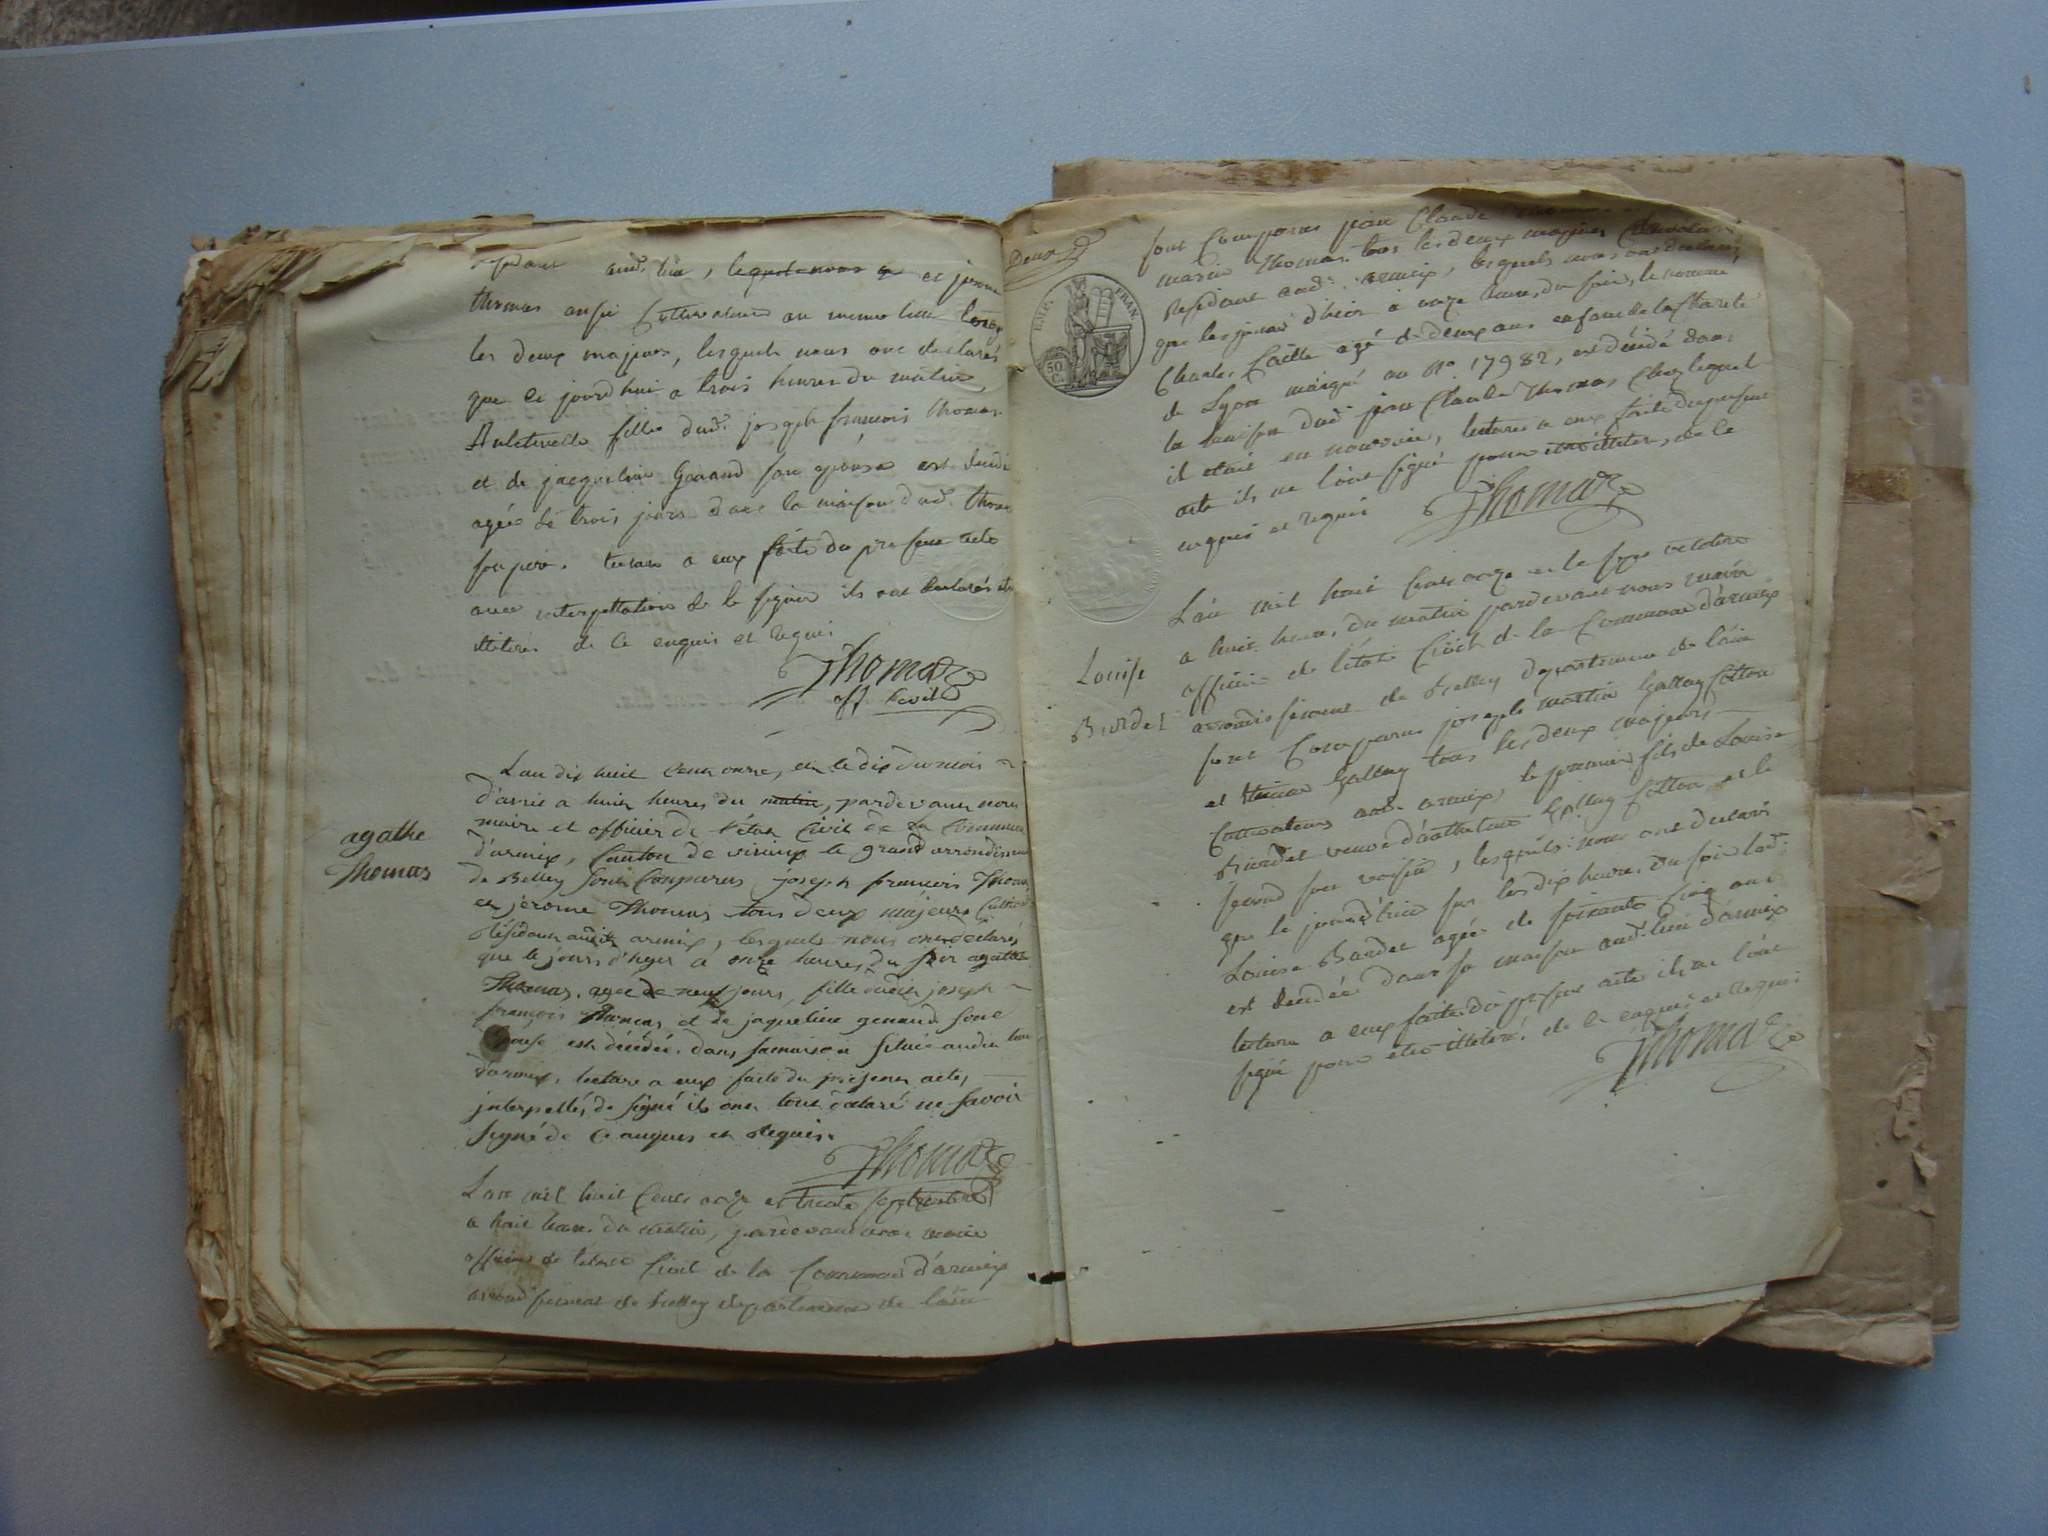 audt lieu, lequel nous a et jerome
thomas aussi Cultivateur au meme lieu tous
les deux majeurs, lesquels nous ont declarés
que ce jourd'hui a trois heures du matin
fille dudt joseph françois thomas
et de jacqueline Genand son epouse est decedée
agée de trois jours dans la maison dudt thomas
son pere. lecture a eux faite du present acte
avec interpettation de le signer ils ont declarés etre
illiterés de ce enquis et requis
Thomas
off. Civil
agathe
Thomas
L'an dix huit cent onze, en le dix du mois
d'avril a huit heures du matin, pardevant nous
maire et officier de l'état Civil de la Commune
d'armix, Canton de virieux le grand arrondissement
de Belley sont Comparus joseph francois Thomas
et jerome Thomas tous deux majeurs Cultivat
résidant audit armix, lesquels nous ont déclarés
que le jours d'hyer a onze heures du soir agathe
Thomas, agée de neuf jours, fille dudit joseph
françois Thomas et de jaqueline genand sone
epouse est décédée. dans sa maison situé audit lieu
d'armix, lecture a eux faite du present acte,
interpellés de signé ils ont tous déclaré ne savoir
signé de ce enquis et Requis.
Thomas
L'an mil huit Cent onze et trente septembre
a huit heure du matin, pardevant nous maire
officier de l'etat Civil de la Commune d'armix
arrondissement de belley departement de l'ain
Deux
EMP. FRAN.
50 C.
sont Comparus jean Claude
marin thomas tous les deux majeurs Cultivateurs
Residant audt armix, lesquels nous ont declarés
que le jour d'hier a onze heure du soir, le nomme
Charles Caille agé de deux ans enfant de la Charité
de Lyon marqué au No 17982, est décédé dans
la maison dudt jean Claude Thomas chez lequel
il etait en nourrice, lecture a eux faite du present
acte ils ne l'ont signé pour etre illiteré, de ce
enquis et requis
Thomas
Louise
Burdet
L'an mil huit Cent onze et le octobre
a huit heure du matin pardevant nous maire
officier de l'état Civil de la Commune d'armix
arrondissement de belley departement de l'ain
sont Comparus joseph martin Gallay Cottin
et Gallay tous les deux majeurs
Cultivateurs audt armix, le premier fils de Louise
Burdet veuve d'anthelme Gallay Cottin, et le
second son voisin, lesquels nous ont declaré
que le jour d'hier sur les dix heure du soir ladt
Louise Burdet agée de soixante cinq ans
est decedée dans sa maison audt lieu d'armix
lecture a eux faite du present acte ils ne l'ont
signé pour etre illiteré de ce enquis et Requis
Thomas